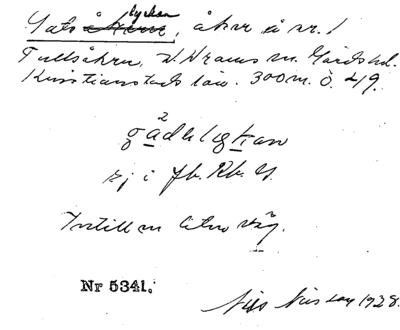 Gatelyckan, åker å nr. 1
Tullsåkra, V. Vrams sn. Gärds hd.
Kristianstads län. 300 m. Ö. 49.
ej i Jb. Rb. Y.
Intill en liten väg.
Nr 5341.
Nils Nilsson 1928.